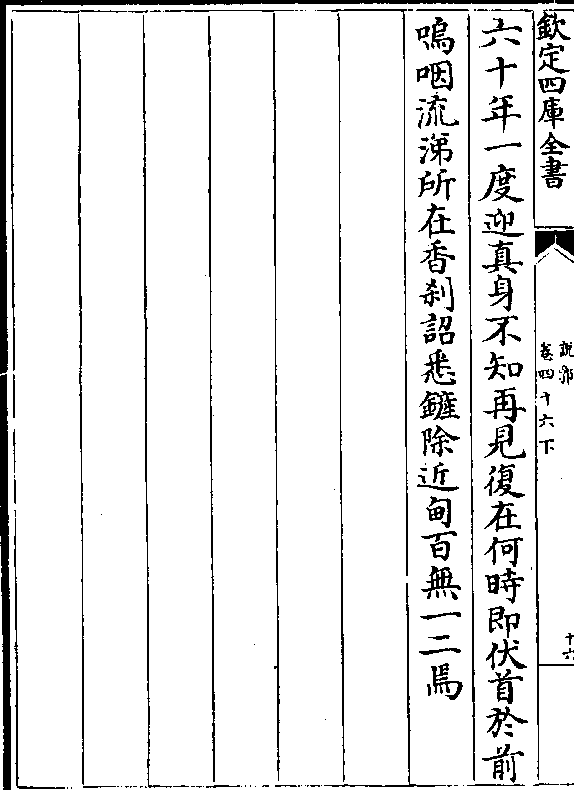 欽定四庫全書
說郛
卷四十六下
十六
六十年一度迎真身不知再見復在何時即伏首於前
嗚咽流涕所在香刹詔悉鏟除近甸百無一二焉